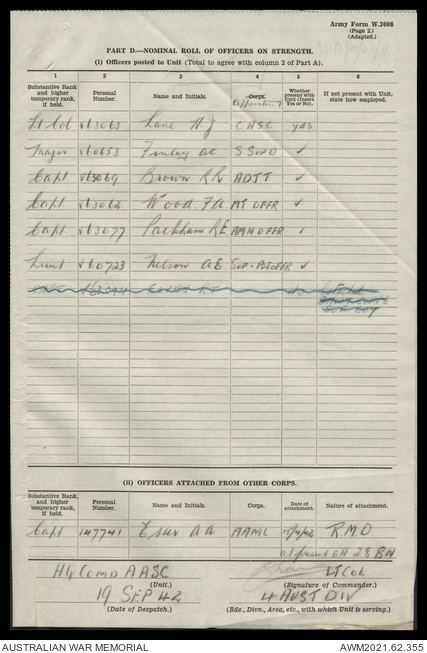 Army Form W.3008
(Page 2.)
(Adapted.)
PART D.—NOMINAL ROLL OF OFFICERS ON STRENGTH.
(i) Officers posted to Unit (Total to agree with column 2 of Part A).
1 2 3 4 5 6
Substantive Rank and higher temporary rank, if held. Personal Number. Name and Initials. Corps. Appointment Whether present with Unit (Insert Yes or No). If not present with Unit, state how employed.
Lt Col V63063 Lane H J CASC yes
Major V60653 Finlay A C S Sup O ✓
Capt V63069 Brown R R ADTT ✓
Capt V63062 Wood F A MT OFFR ✓
Capt V63077 Packham R E AMN OFFR ✓
Lieut V60723 Nelson A E Sup - Pet OFFR ✓
(ii) OFFICERS ATTACHED FROM OTHER CORPS.
Substantive Rank and higher temporary rank, if held. Personal Number. Name and Initials. Corps. Date of attachment. Nature of attachment.
Capt 147741 A A AAMC /4/42 R M O
at present att 28 BN
HQ COMD AASC LT COL
(Unit.) (Signature of Commander.)
19 SEP 42 4 AUST DIV
(Date of Despatch.) (Bde., Divn., Area, etc., with which Unit is serving.)
AUSTRALIAN WAR MEMORIAL AWM2021.62.355